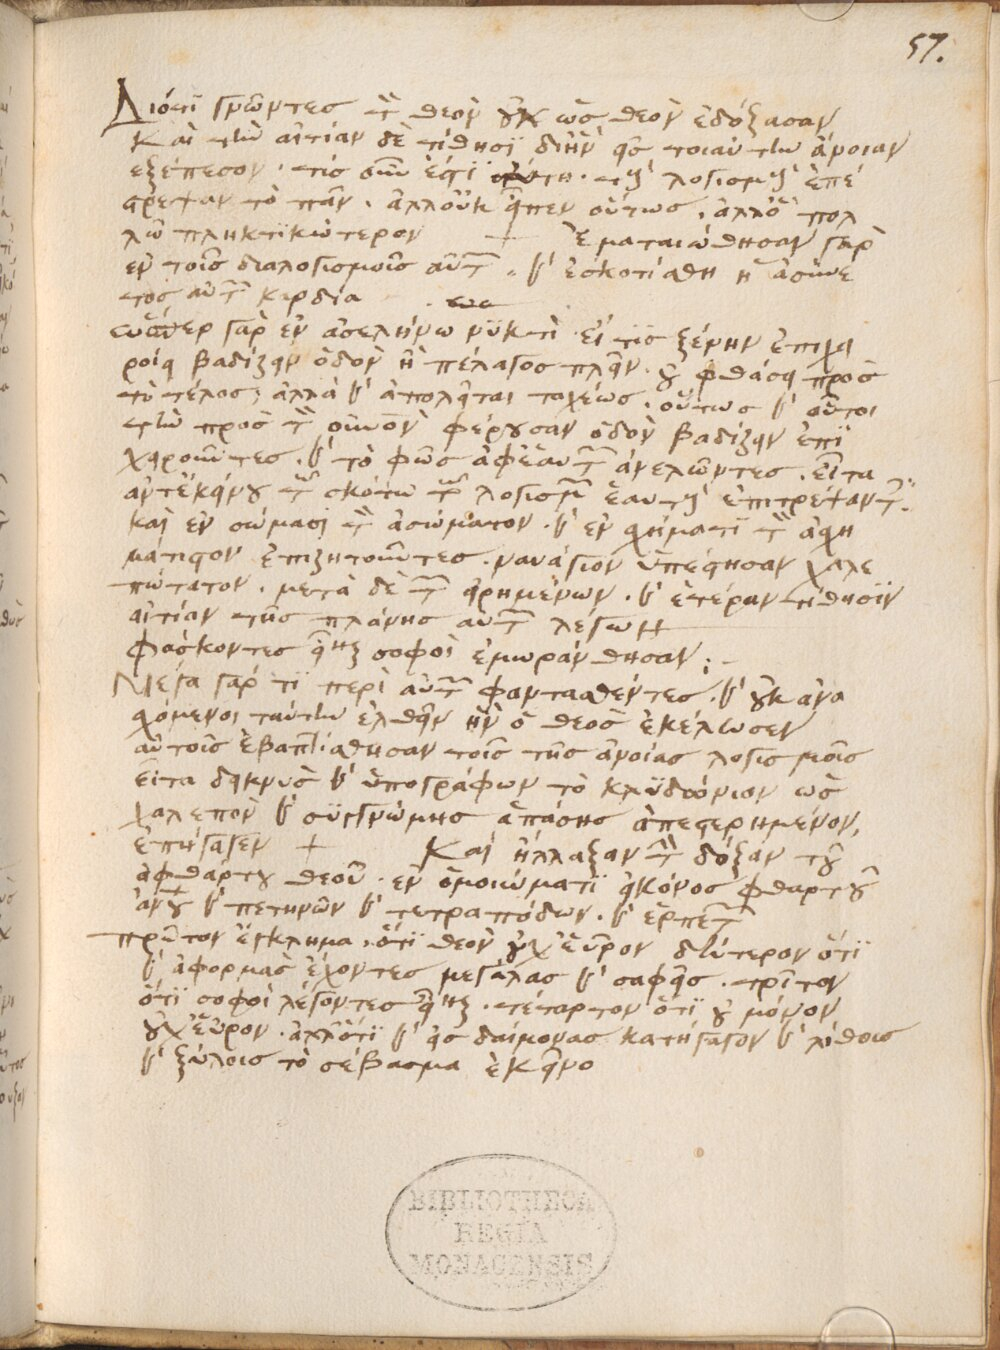 57.
Διότι γνῶντες τὸν θεὸν οὐχ ὡς θεὸν ἐδόξασαν
Καὶ τὴν αἰτίαν δὲ τίθησϊ δι ἣν εἰς τοιαύτην ἄνοιαν
ἐξέπεσον · τίς οὖν ἐστϊ αὕτη · τοῖς λογισμοῖς ἐπέ
τρεψαν τὸ πᾶν . ἀλλ οὐκ εἶπεν οὕτως , ἀλλ ὃ πολ
λῶ πληκτϊκώτερον + Ἐματαιώθησαν γὰρ
ἐν τοῖς διαλογισμοῖς αὐτῶν . καὶ ἐσκοτίσθη ἡ ἀσύνε
τος αὐτῶν καρδία
ὥσπερ γὰρ ἐν ἀσελήνω νϋκτὶ εἴ τϊς ξένην ἐπιχει
ροίη βαδίζειν ὁδὸν ἢ πέλαγος πλεῖν · οὐ φθάσει πρὸς
τὸ τέλος , ἀλλὰ καὶ ἀπολεῖται ταχέως . οὕτως καὶ οὗτοι
τὴν πρὸς τὸν οὐνὸν φέρουσαν ὁδὸν βαδίζειν ἐπϊ
χειροῦντες . καὶ τὸ φῶς ἀφ ἑαυτῶν ἀνελῶντες . εἶτα
ἀντ ἐκείνου τῶ σκότω τῶν λογισμῶν ἑαυτοῖς ἐπιτρεψαντ.
καὶ ἐν σώμασϊ τὸν ἀσώματον . καὶ ἐν σχήματϊ τὸν ἀσχη
μάτιστον ἐπιζητοῦντες . ναυάγιον ὑπέστησαν χαλε
πώτατον . μετὰ δὲ τῶν εἰρημένων . καὶ ἑτέραν τίθησϊν
αἰτίαν τῆς πλάνης αὐτῶν λέγων
Φάσκοντες εἶναι σοφοὶ ἐμωράνθησαν ; -
Μέγα γάρ τϊ περὶ αὐτῶν φαντασθέντες . καὶ οὐκ ἀνα
σχόμενοι ταύτην ἐλθεῖν ἣν ὁ θεὸς ἐκέλευσεν
αὐτοῖς ἐβαπτίσθησαν τοῖς τῆς ἀνοίας λογισμοῖς
εἶτα δεικνὺς καὶ ὑπογράφων τὸ κλϋδώνιον ὡς
χαλεπὸν καὶ σϋγγνώμης ἁπάσης ἀπεστερημένον,
ἐπήγαγεν + Καὶ ἤλλαξαν τὴν δόξαν τοῦ
ἀφθάρτου θεοῦ · ἐν ὁμοιώματϊ εἰκόνος φθαρτοῦ
ἀνου καὶ πετηνῶν καὶ τετραπόδων . καὶ ἑρπετῶν
πρῶτον ἔγκλημα , ὅτϊ θεὸν οὐχ εὗρον δεύτερον ὅτϊ
καὶ ἀφορμὰς ἔχοντες μεγάλας καὶ σαφεῖς . τρίτον
ὅτϊ σοφοὶ λέγοντες εἶναι . τέταρτον ὅτϊ οὐ μόνον
οὐχ εὗρον . ἀλλ ὅτϊ καὶ εἰς δαίμονας κατήγαγον καὶ λίθοις
καὶ ξύλοις τὸ σέβασμα ἐκεῖνο
BIBLIOTHECA
REGIA
MONACENSIS